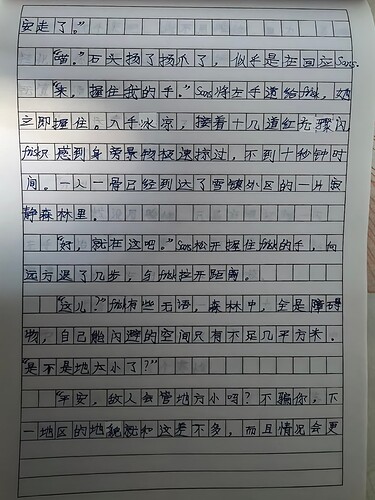 安走了。”
“喵。”石头扬了扬爪了，似乎是在回应Sans.
“来，握住我的手。”Sans将左手递给frisk，她
立即握住。入手冰凉，接着十几道红光骤闪，
frisk只感到身旁景物极速掠过，不到十秒钟时
间。一人一骨已经到达了雪镇外区的一片寂
静森林里。
“好，就在这吧。”Sans松开握住frisk的手，向
远方退了几步，与frisk拉开距离。
“这儿？”frisk有些无语，森林中，全是障碍
物，自己能闪避的空间只有不足几平方米。
“是不是地方小了？”
“平安，敌人会管地方小吗？不骗你，下
一地区的地貌就和这差不多，而且情况会更